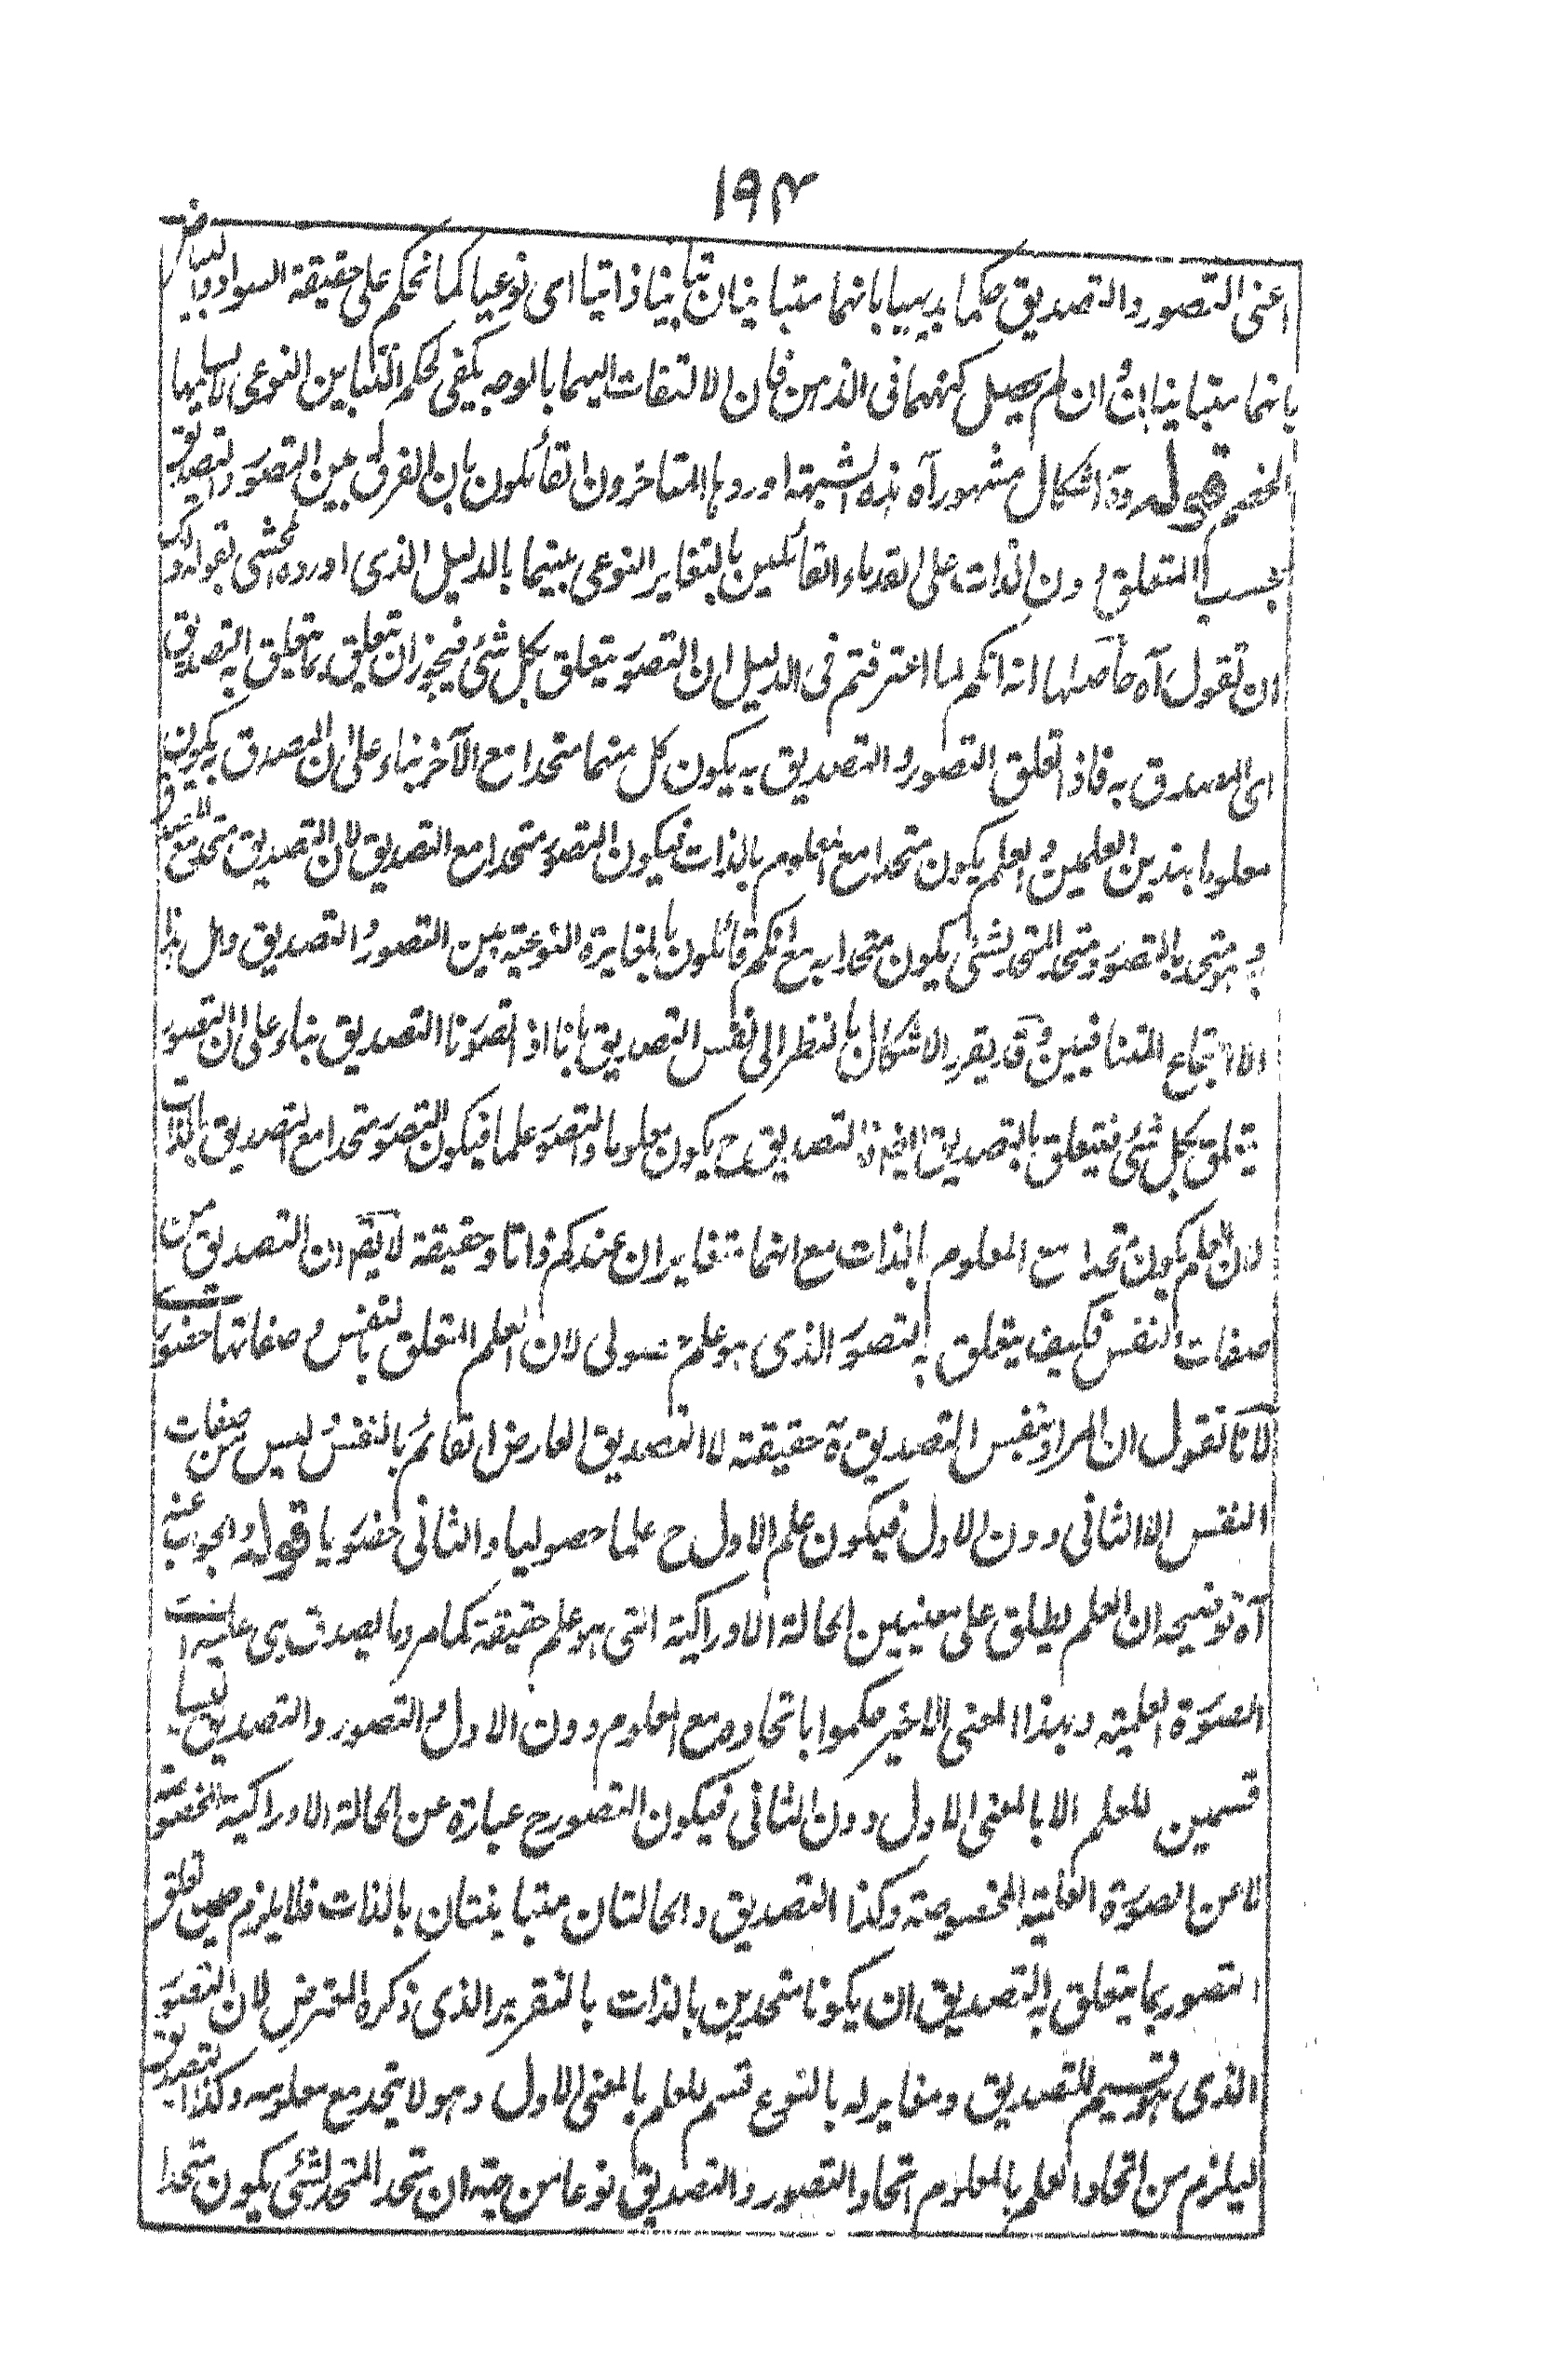 ١٩٤
اعنى التصور والتصديق حكما بديهيا بانهما متباينان تباينا ذاتيا اى نوعيا كما نحكم على حقيقة السواد والبياض
بانهما متباينان وان لم يحصل كنههما فى الذهن فان الالتفات اليهما بالوجه يكفى لحكم التباين النوعى لا يسلمها
الخصم قوله وفه اشكال مشهور آه هذه الشبهة اوردها المتاخرون القائلون بان الفرق بين التصور والتصديق
بحسب المتعلق دون الذات على القدماء القائلين بالتغاير النوعى بينهما بالدليل الذى اورده المحشى بقوله ولك
ان تقول آه حاصلها انه انكم لما اعترفتم فى الدليل ان التصور يتعلق بكل شئ فيجوز ان يتعلق بما يتعلق به التصديق
اى المصدق به فاذا تعلق التصور والتصديق به يكون كل منهما متحدا مع الآخر بناء على ان المصدق به يكون
معلوما بهذين العلمين والعلم يكون متحدا مع المعلوم بالذات فيكون التصور متحدا مع التصديق لان التصديق متحد مع المصدق
به وهو متحد بالتصور ومتحد المتحد لشئ يكون متحدا به مع انكم قائلون بالمغايرة النوعية بين التصور والتصديق وهل هذا
الا اجتماع المتنافيين وقد يقرر الاشكال بالنظر الى نفس التصديق بانا اذا تصورنا التصديق بناء على ان التصور
يتعلق بكل شئ فيتعلق بالتصديق ايضا فالتصديق ح يكون معلوما والتصور علما فيكون التصور متحدا مع التصديق بالذات
لان العلم يكون متحدا مع المعلوم بالذات مع انهما متغايران عندكم ذاتا وحقيقة لا يقال ان التصديق من
صفات النفس فكيف يتعلق به التصور الذى هو علم حصولى لان العلم المتعلق بالنفس وصفاتها حضورى
لانا نقول ان المراد بنفس التصديق حقيقته لا التصديق العارض القائم بالنفس وليس من صفات
النفس الا الثانى دون الاول فيكون علم الاول ح علما حصوليا والثانى حضوريا قوله والجواب عنه
آه توضيحه ان العلم يطلق على معنيين الحالة الادراكية التى هو علم حقيقة كما مر وما يصدق هى عليه اعنى
الصورة العلمية وبهذا المعنى الاخير حكموا باتحاده مع المعلوم دون الاول والتصور والتصديق ليسا
قسمين للعلم الا بالمعنى الاول دون الثانى فيكون التصور ح عبارة عن الحالة الادراكية المخصوصة
لا عن الصورة العلمية المخصوصة وكذا التصديق والحالتان متباينتان بالذات فلا يلزم حين تعلق
التصور بما يتعلق به التصديق ان يكونا متحدين بالذات بالتقرير الذى ذكره المعترض لان التصور
الذى هو قسيم للتصديق ومغاير له بالنوع قسم للعلم بالمعنى الاول وهو لا يتحد مع معلومه وكذا التصديق
ليلزم من اتحاد العلم بالمعلوم اتحاد التصور والتصديق نوعا من جهة ان متحد المتحد لشئ يكون متحدا